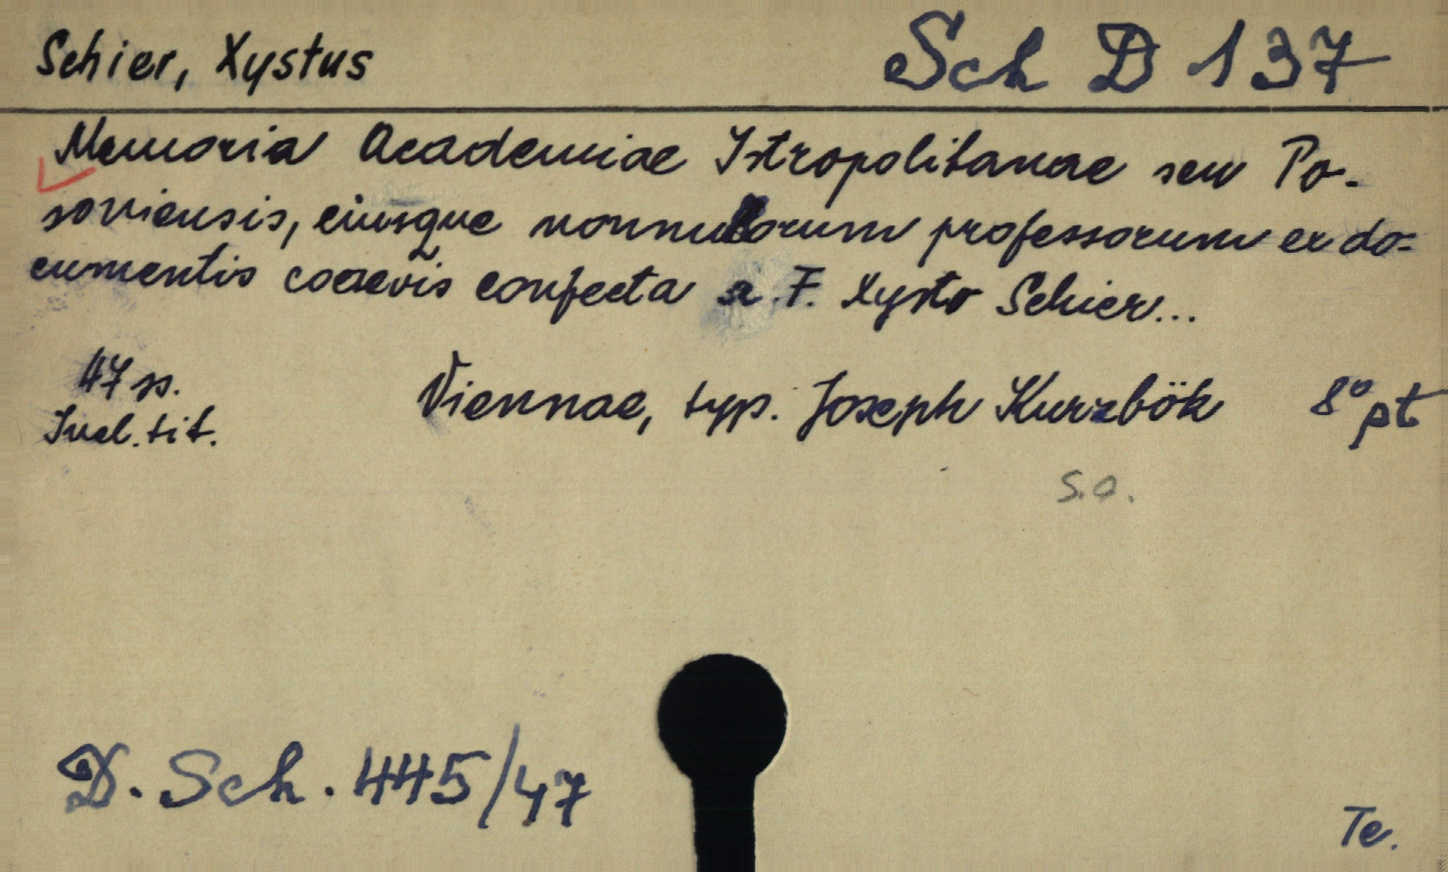 Schier, Xystus
Sch D 137
Memoria Academiae Istropolitanae seu Po-
soniensis, eiusque nonnullorum professorum ex do=
cumentis coaevis confecta a F. Xysto Schier...
47 ss.
Viennae, typ. Joseph Kurzbök 8° pt
Incl. tit.
s.a.
D. Sch. 445/47
Te.